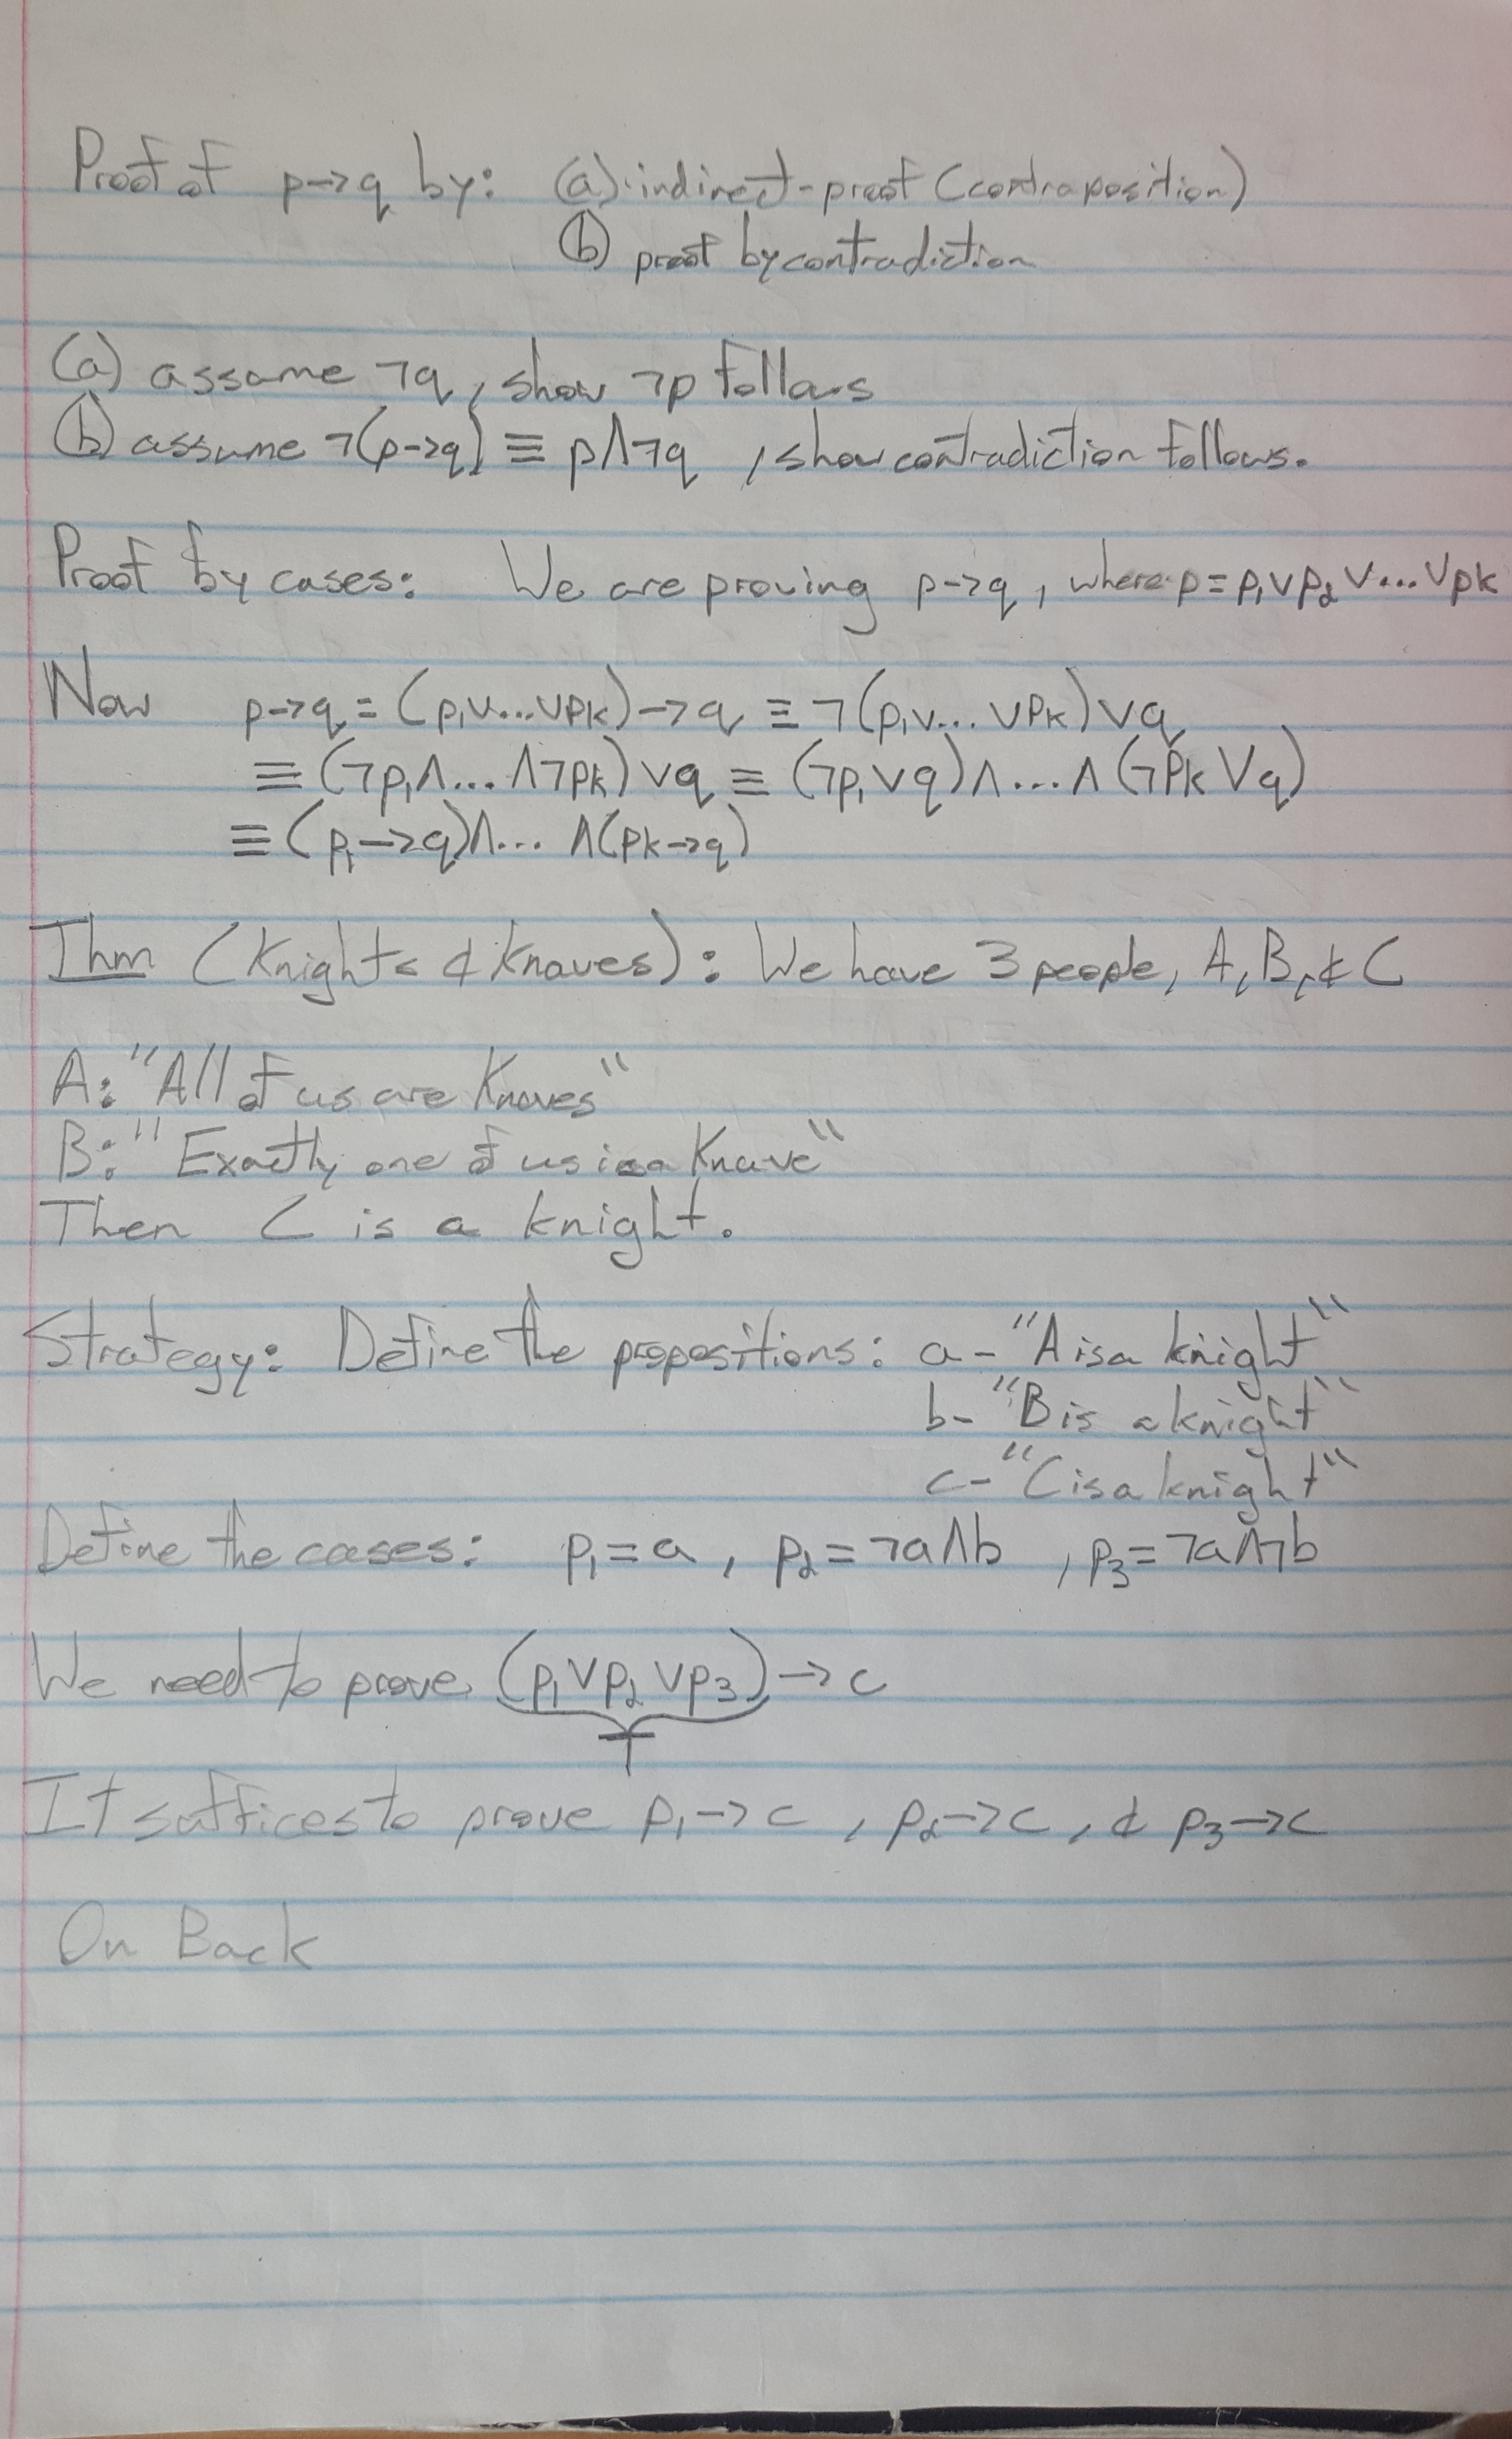 Proof of p→q by: (a) indirect-proof (contraposition)
(b) proof by contradiction
(a) assume ¬q, show ¬p follows
(b) assume ¬(p→q) ≡ p∧¬q , show contradiction follows.
Proof by cases: We are proving p→q, where p = p₁∨p₂∨...∨pk
Now p→q = (p₁∨...∨pk)→q ≡ ¬(p₁∨...∨pk)∨q
≡ (¬p₁∧...∧¬pk)∨q ≡ (¬p₁∨q)∧...∧(¬pk∨q)
≡ (p₁→q)∧...∧(pk→q)
Thm (Knights & Knaves): We have 3 people, A, B, & C
A: "All of us are Knaves"
B: "Exactly one of us is a Knave"
Then C is a knight.
Strategy: Define the propositions: a - "A is a knight"
b - "B is a knight"
c - "C is a knight"
Define the cases: p₁ = a , p₂ = ¬a∧b , p₃ = ¬a∧¬b
We need to prove (p₁∨p₂∨p₃)→c
T
It suffices to prove p₁→c , p₂→c, & p₃→c
On Back